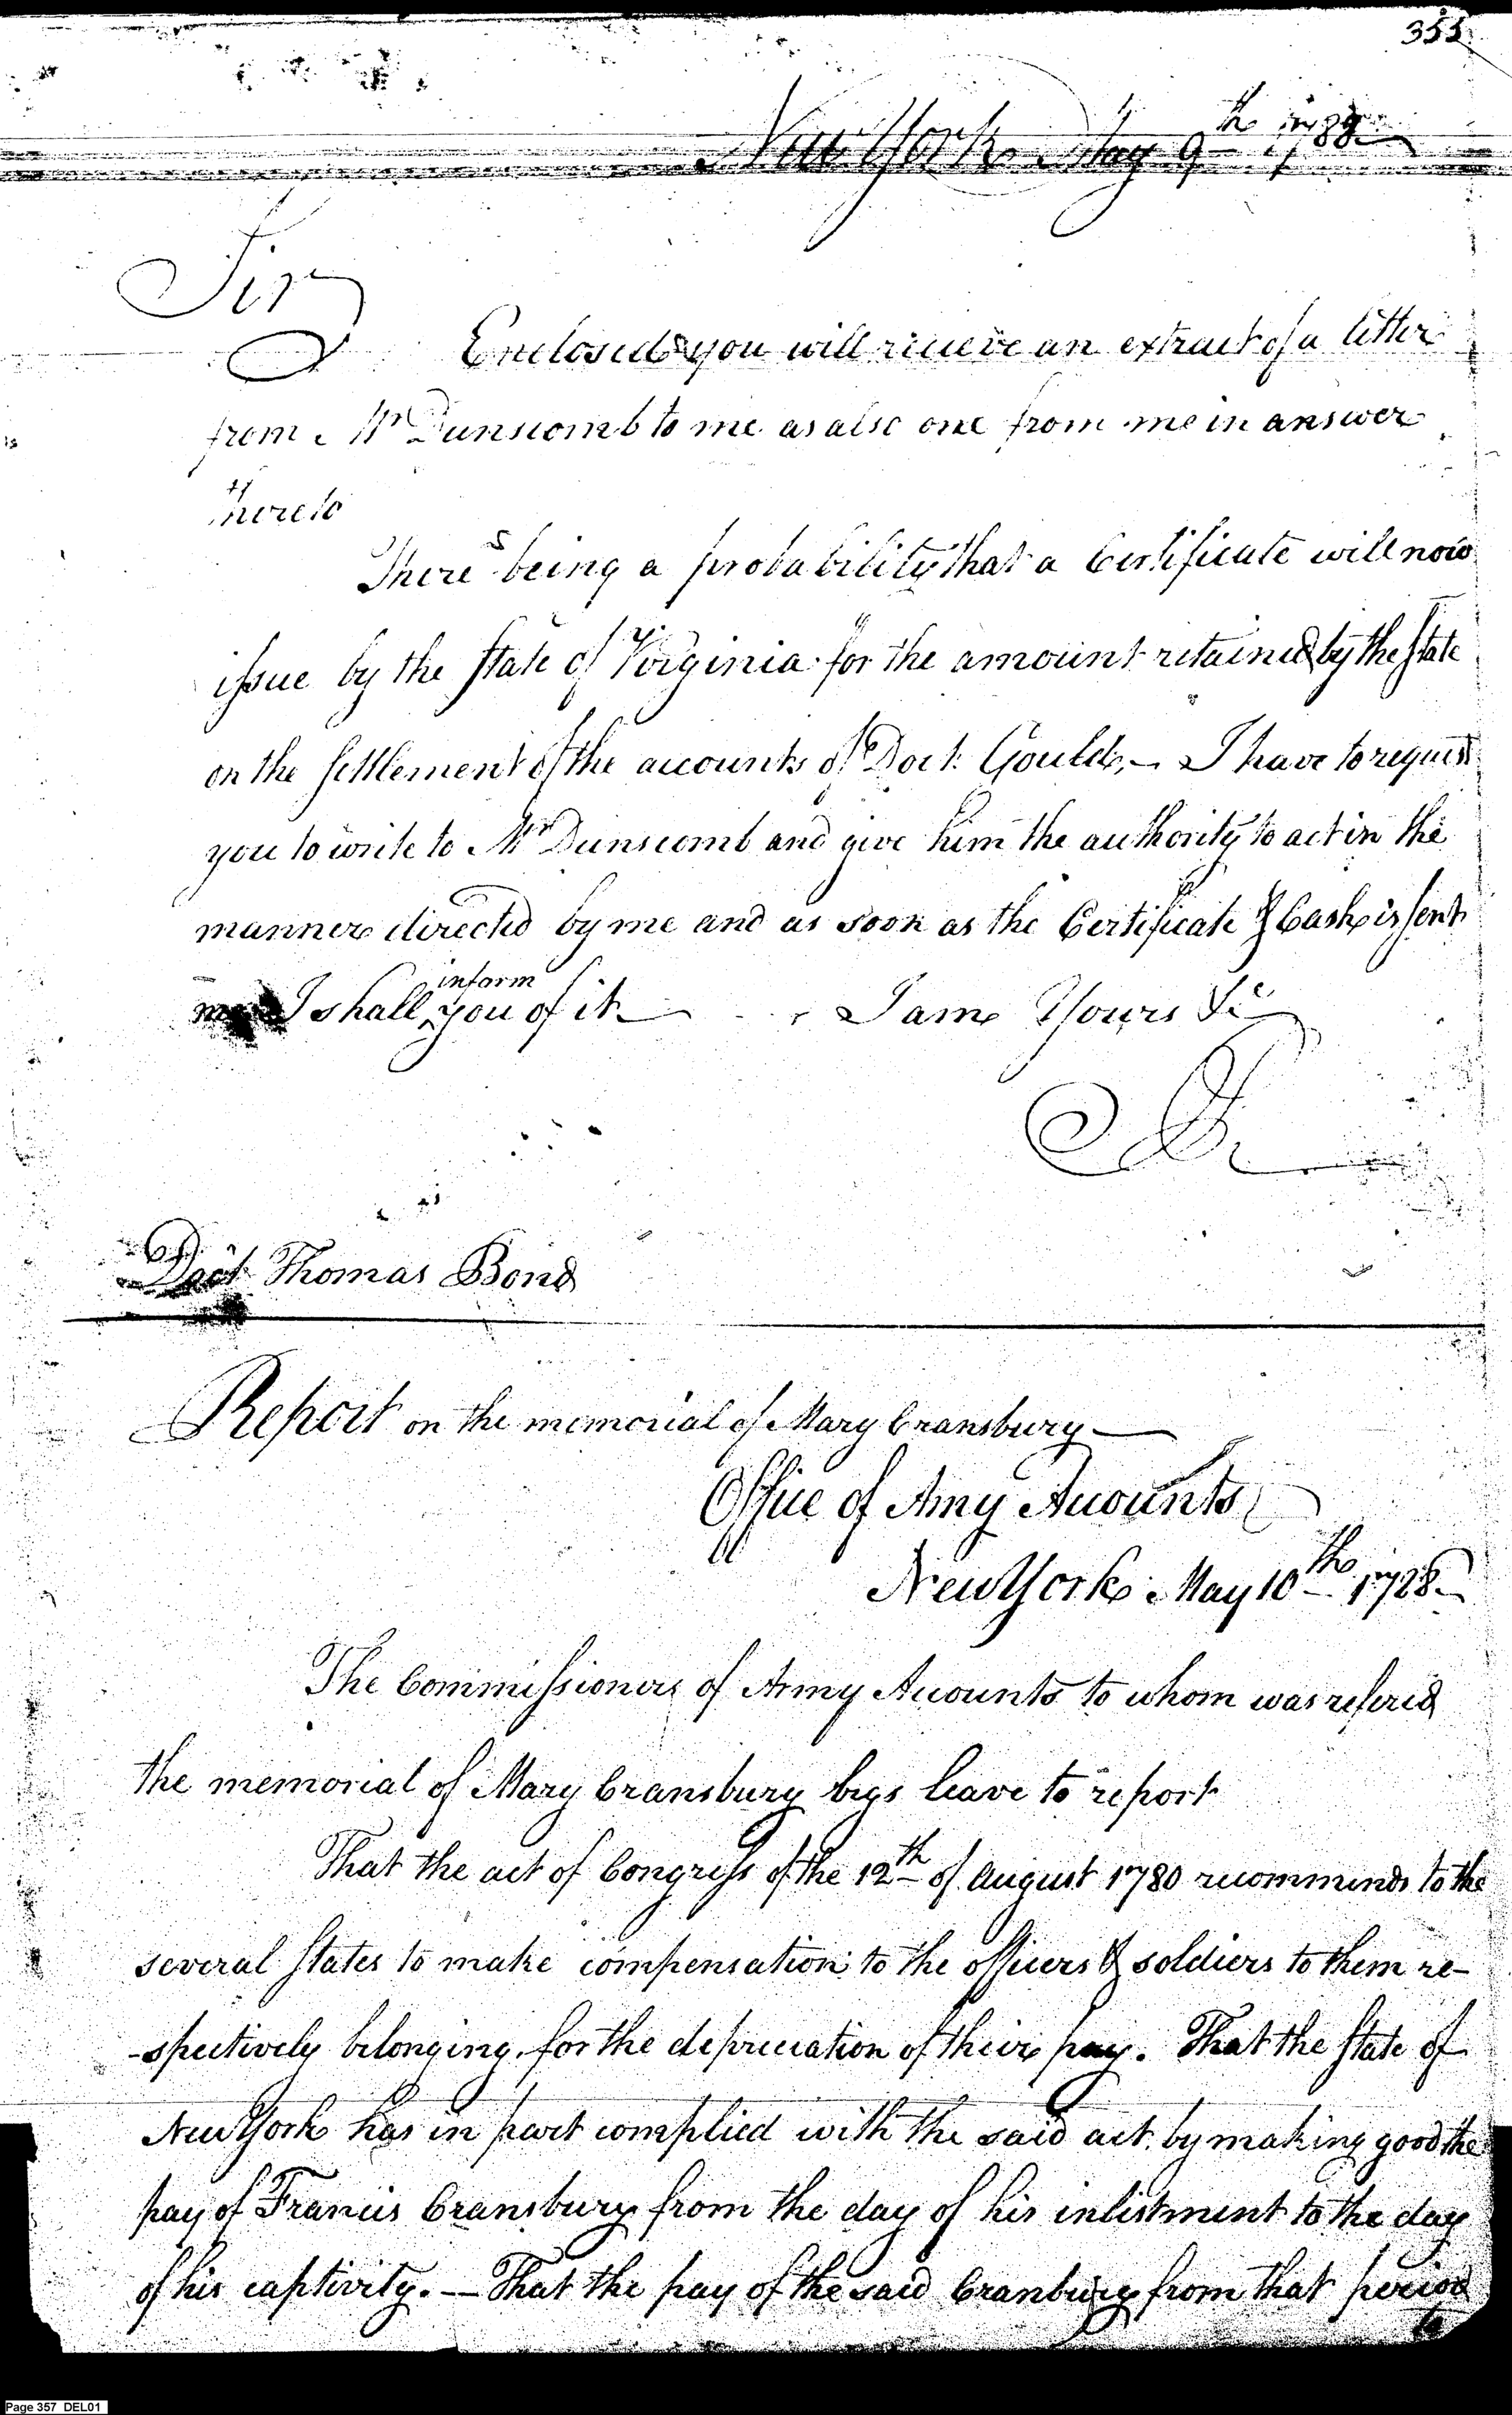 355
New York May 9th 1788
Sir
Enclosed you will recieve an extract of a letter
from Mr Dunscomb to me as also one from me in answer
thereto
There being a probability that a Certificate will now
issue by the State of Virginia for the amount retained by the State
on the Settlement of the accounts of Doct. Gould, – I have to request
you to write to Mr Dunscomb and give him the authority to act in the
manner directed by me and as soon as the Certificate & Cash is sent
me I shall inform you of it — I am Yours &c
Doct Thomas Bond
Report on the memorial of Mary Cransbury —
Office of Amy Accounts
New York May 10th 1788
The Commissioners of Army Accounts to whom was refered
the memorial of Mary Cransbury begs leave to report
That the act of Congress of the 12th of August 1780 recommends to the
several States to make compensation to the officers & soldiers to them re-
-spectively belonging for the depreciation of their pay. That the State of
New York has in part complied with the said act by making good the
pay of Francis Cransbury from the day of his inlistment to the day
of his captivity. — That the pay of the said Cranbury from that period
to
Page 357 DEL01